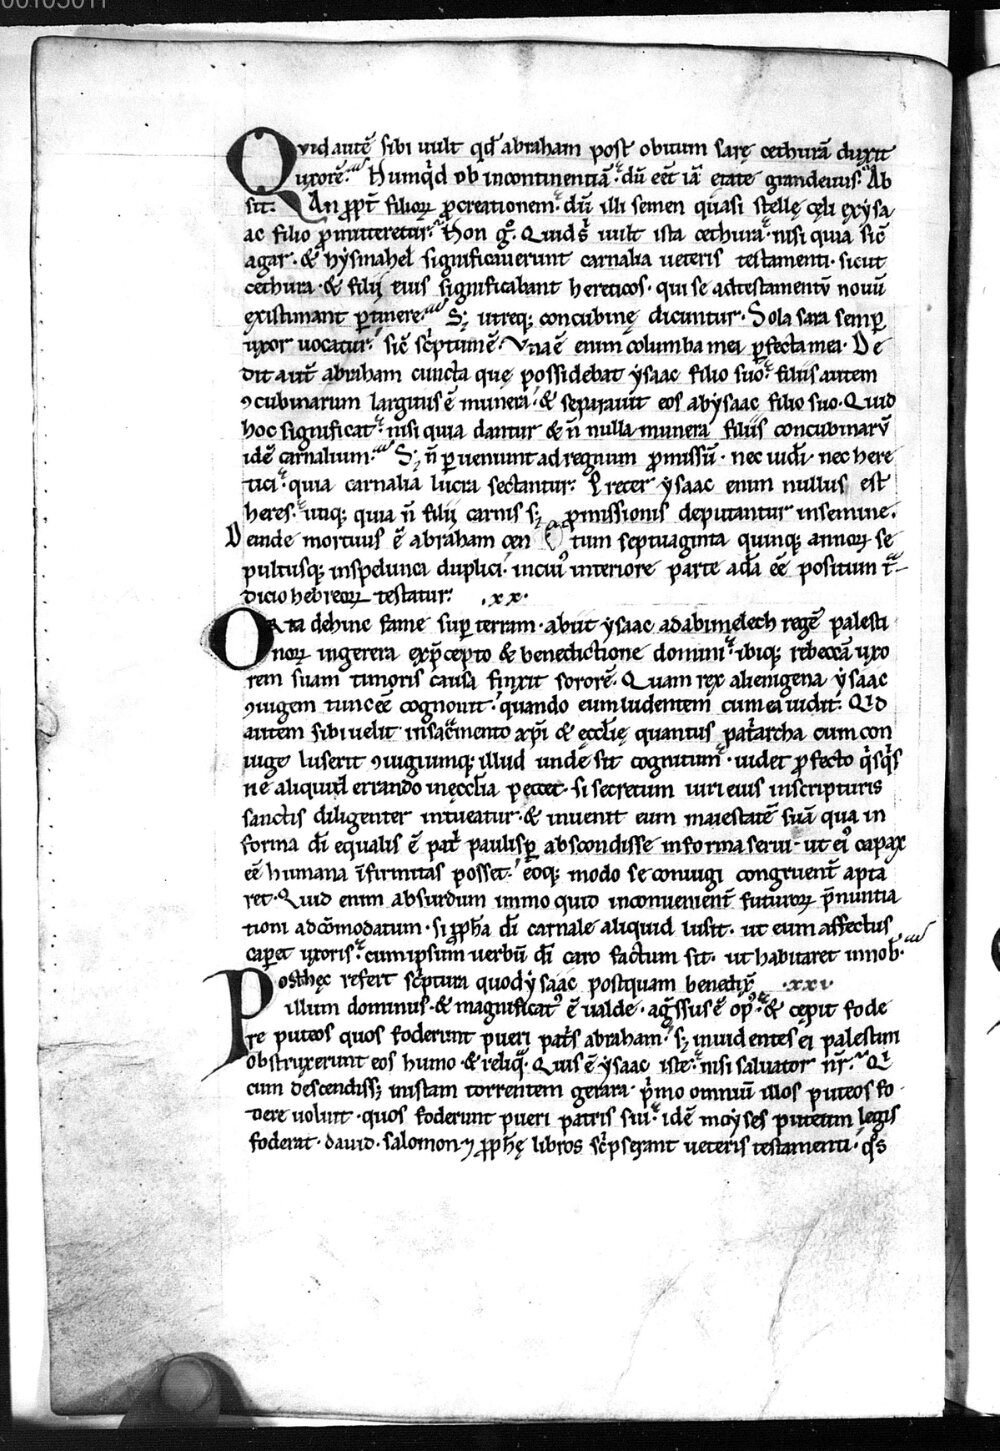 00105011
Quid autē sibi uult qđ abraham post obitum sarę cethurā duxit
uxorē. Numqͥd ob incontinentiā. dū eēt iā etate grandeuus. Ab
sit. An ꝓpt̄ filioꝝ ꝓcreationem. dū illi semen quasi stellę cęli ex ysa
ac filio ꝓmitteretur. Non gͦ. Quid gͦ uult ista cethura. nisi quia sic̄
agar. & hysmahel significauerunt carnalia ueteris testamenti. sicut
cethura. & filij eius significabant hereticos. qui se ad testamentū nouū
existimant ꝑtinere. S; utreq; concubinę dicuntur. Sola sara semꝑ
uxor uocatur. sic̄ sc̄ptum ē. Vna ē enim columba mea ꝑfecta mea. De
dit aut̄ abraham cuncta quę possidebat ysaac filio suo. filiis autem
ꝯcubinarum largitus ē munera. & separauit eos ab ysaac filio suo. Quid
hoc significat. nisi quia dantur & n̄ nulla munera filiis concubinarū
idē carnalium. S; n̄ ꝑueniunt ad regnum ꝓmissū. nec iudęi. nec here
tici. quia carnalia lucra sectantur. Preter ysaac enim nullus est
heres. utiq; quia n̄ filij carnis s; ꝓmissionis deputantur in semine.
Deinde mortuus ē abraham cen tum septuaginta quinq; annoꝝ se
pultusq; in spelunca duplici. in cuiꝰ interiore parte adā eē positum t̄
dicio hebreoꝝ testatur. .xx.
Orta dehinc fame suꝑ terram. abiit ysaac ad abimelech regē palesti
noꝝ in gerera ex p̄cepto & benedictione domini. ibiq; rebeccā uxo
rem suam timoris causa finxit sororē. Quam rex alienigena ysaac
ꝯiugem tunc eē cognouit. quando eum ludentem cum ea uidit. Qͥd
autem sibi uelit in sacͣmento xp̄i & ęcclię quantus patͥarcha cum con
iuge luserit ꝯiugiumq; illud unde sit cognitum. uidet ꝓfecto qͥsqͥs
ne aliquid errando in ęcclīa peccet. si secretum uiri eius in scripturis
sanctis diligenter intueatur. & inuenit eum maiestatē suā qua in
forma dī equalis ē patͥ paulisꝑ abscondisse in forma serui. ut eiꝰ capax
eē humana īfirmitas posset. eoq; modo se coniugi congruent̄ apta
ret. Quid enim absurdum immo quid inconuenient̄ futuroꝝ p̄nuntia
tioni adcōmodatum. si ꝓpha dī carnale aliquid lusit. ut eum affectus
caperet uxoris. cum ipsum uerbū dī caro factum sit. ut habitaret in nob̄.
Post hęc refert sc̄ptura quod ysaac postquam benedix̄ .xxi.
illum dominus. & magnificatꝰ ē ualde. agͣssus ē opꝰ. & cępit fode
re puteos quos foderunt pueri patͥs abraham. s; inuidentes ei palestini
obstruxerunt eos humo. & reliqͣ. Quis ē ysaac iste. nisi saluator nr̄. Qͥ
cum descendiss; in istam torrentem gerara. pͥmo omniū illos puteos fo
dere uoluit. quos foderunt pueri patris sui. idē moyses puteum legis
foderat. dauid. salomon ⁊ ꝓphę libros sc̄pserant ueteris testamenti. qͦs